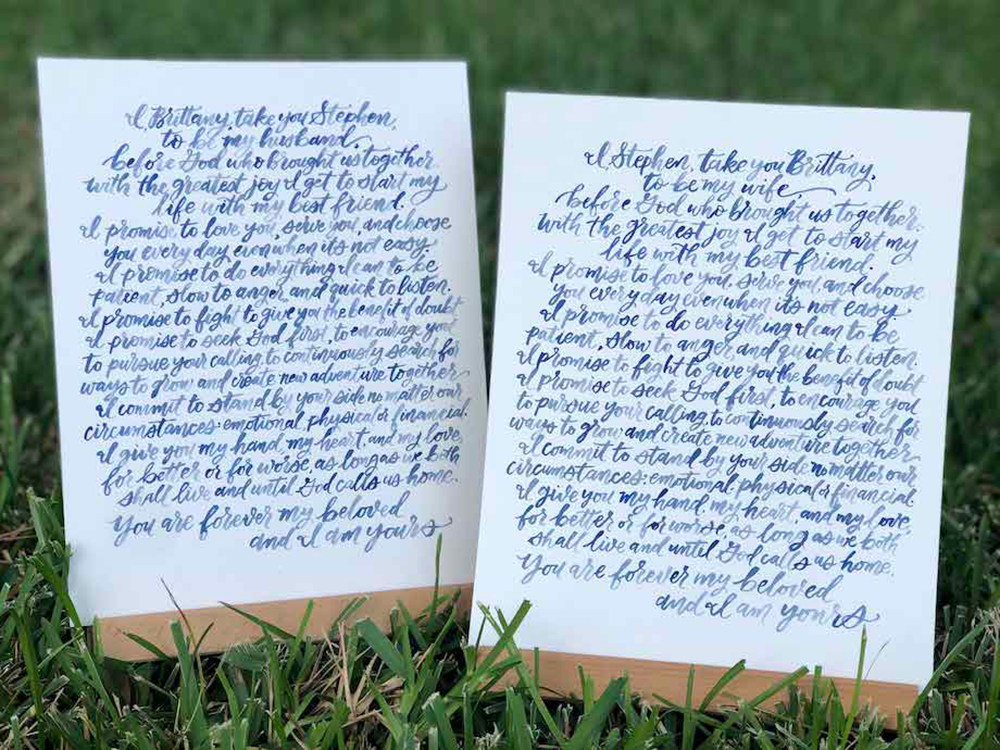 I, Brittany, take you Stephen,
to be my husband.
before God who brought us together.
with the greatest joy I get to start my
life with my best friend.
I promise to love you, serve you, and choose
you every day, even when it's not easy.
I promise to do everything I can to be
patient, slow to anger, and quick to listen.
I promise to fight to give you the benefit of doubt
I promise to seek God first, to encourage you
to pursue your calling, to continuously search for
ways to grow and create new adventure together
I commit to stand by your side no matter our
circumstances: emotional, physical or financial.
I give you my hand, my heart, and my love,
for better or for worse, as long as we both
shall live and until God calls us home.
You are forever my beloved
and I am yours
I, Stephen, take you Brittany,
to be my wife
before God who brought us together.
with the greatest joy I get to start my
life with my best friend.
I promise to love you, serve you, and choose
you every day even when it's not easy
I promise to do everything I can to be
patient, slow to anger, and quick to listen.
I promise to fight to give you the benefit of doubt
I promise to seek God first, to encourage you
to pursue your calling, to continuously search for
ways to grow and create new adventure together
I commit to stand by your side no matter our
circumstances: emotional, physical or financial
I give you my hand, my heart, and my love,
for better or for worse, as long as we both
shall live and until God calls us home.
You are forever my beloved
and I am yours